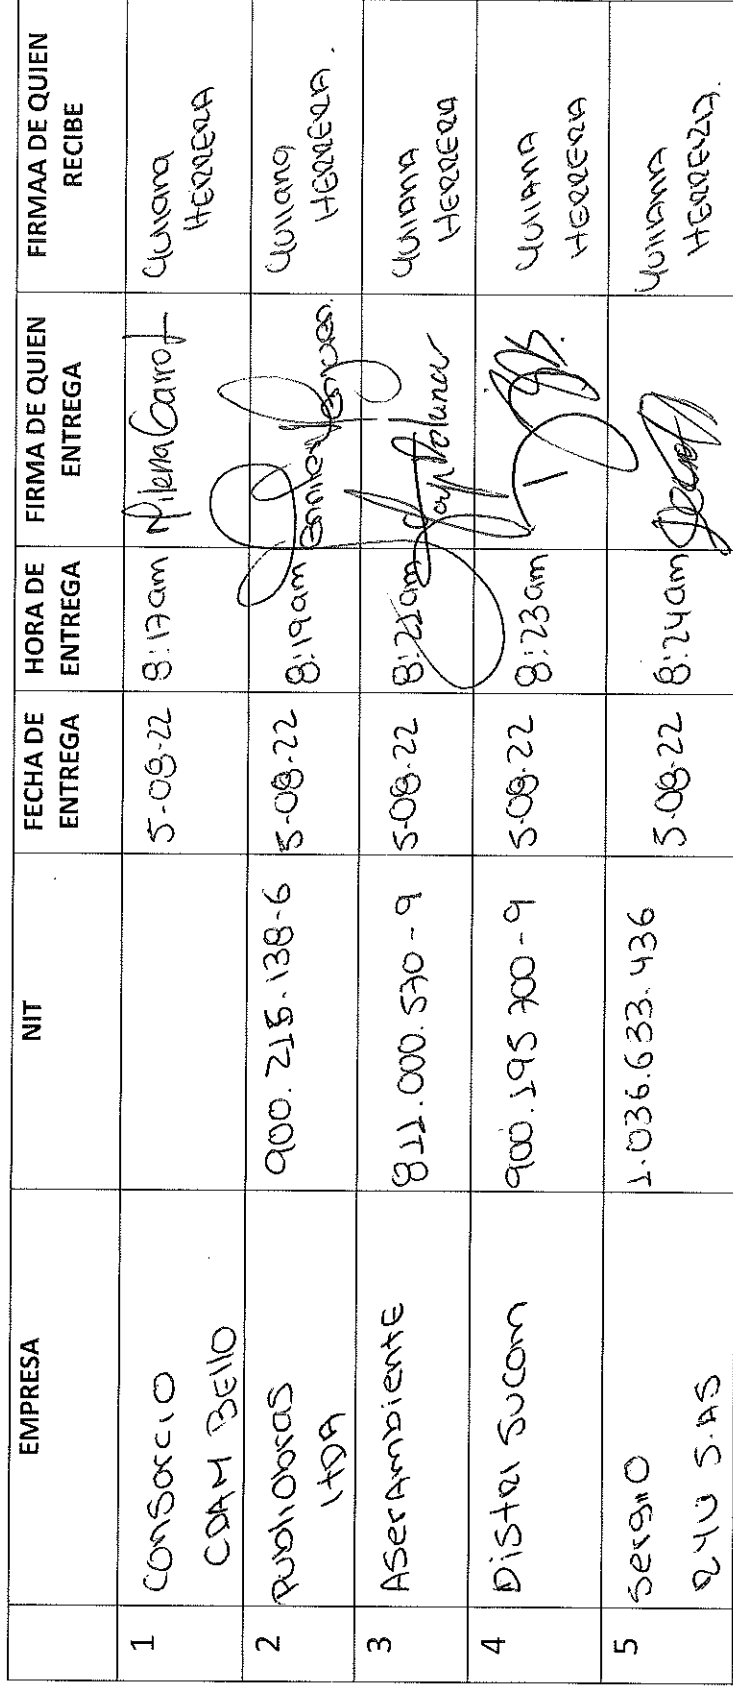 EMPRESA NIT FECHA DE ENTREGA HORA DE ENTREGA FIRMA DE QUIEN ENTREGA FIRMAA DE QUIEN RECIBE
1 Consorcio CDAM BEllO 5-08-22 8:17am Milena YuliaNa HERRERA
2 PubliObras LtDA 900.215.138-6 5-08-22 8:19am YuliaNa HERRERA.
3 ASerAmbientE 811.000.570-9 5-08-22 8:21am YuliANA HERRERA
4 DiStRi Sucom 900.195 700-9 5-08-22 8:23am YuliANA HERRERA
5 Sergio S.AS 1.036.633.436 5-08-22 8:24am YuliANA HERRERA.